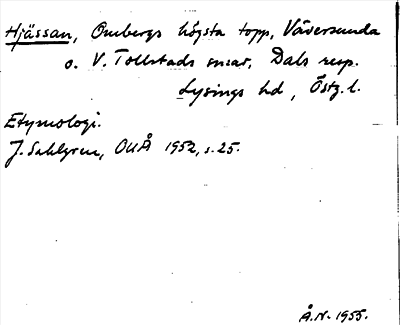 Hjässan, Ombergs högsta topp, Väversunda
o. V. Tollstads snar, Dals resp.
Lysings hd, Östg.l.
Etymologi.
J. Sahlgren, OUÅ 1952, s. 25.
Å.N. 1955.